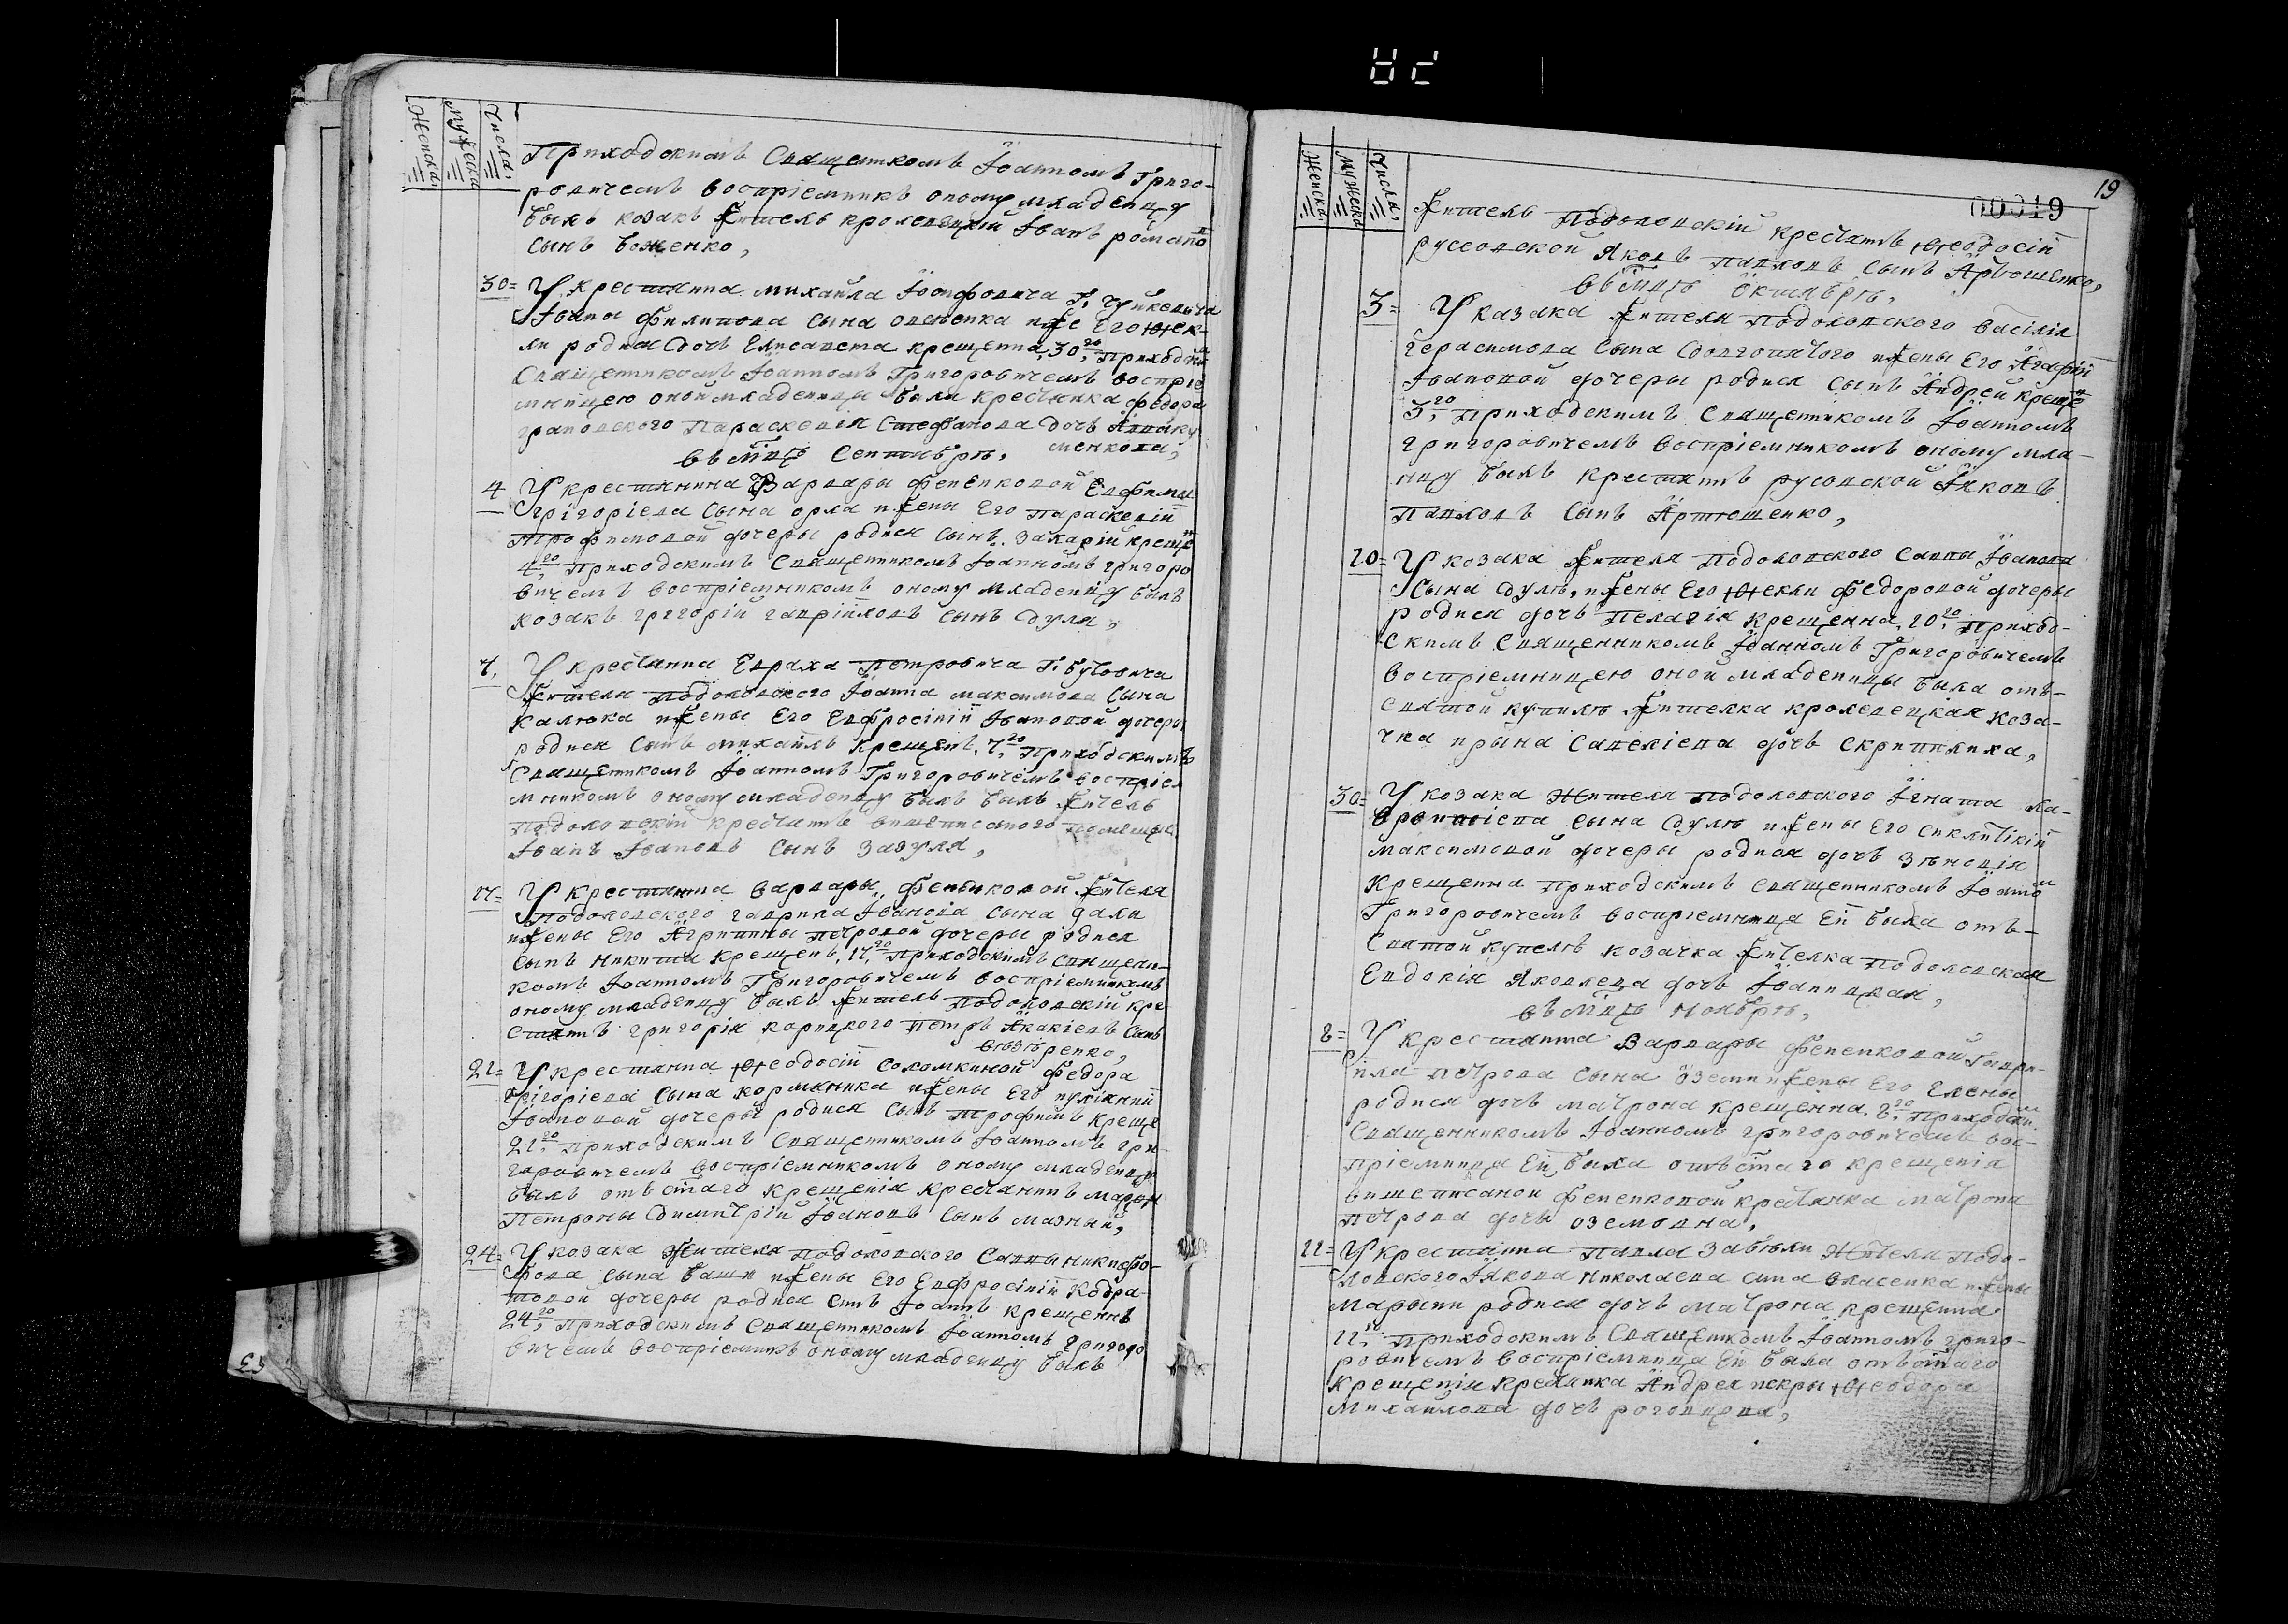 Числа,
Мужеска
Женска,
Приходскимъ Священикомъ Іоанномъ Григо-
ровичемъ воспріемникъ оному младенцу
былъ козакъ житель кролевецкій Іванъ романо
сынъ Боженко,
30= У крестянина михаила Іосифовича Г,
Івана Филипова сына жены Его Ѳек-
ли родися дочь Елисавета крещенна, 30го, Приходски
Священикомъ Іоанномъ Григоровичемъ воспріе
мницею оной младеницы была крестянка федора
Параскевія Стефанова дочь
менкова,
въ мцѣ Септябрѣ,
4 У крестянина Варвары фененковой Евфима
Григоріева сына орла и жены Его параскевіи
трофимовой дочеры родися сынъ захарій креще
4го, приходскимъ Священикомъ Іоанномъ григоро
вичемъ воспріемникомъ оному младенцу былъ
козакъ григорій гавріиловъ сынъ дуля,
7, У крестянина Евраха Петровича Г, бутовича
жителя подоловского Іоанна максимова сына
калюжа и жены Его Евфросініи Івановой дочеры
родися сынъ михаилъ крещенъ, 7го приходскимъ
Священикомъ Іоанномъ Григоровичемъ воспріе
мникомъ оному младенцу былъ былъ житель
подоловскій крестянинъ вишеписаного помещи
Іванъ Івановъ сынъ зазуля,
17= У крестянина варвары, фененковой жителя
подоловского гаврила Іванова сына дали
и жены Его Агрипины петровой дочеры родися
сынъ никита крещенъ, 17го приходскимъ священи-
комъ Іоанномъ Григоровичемъ воспріемникомъ
оному младенцу былъ житель подоловскій кре
стянинъ григорія корицкого петръ Акакіевъ сынъ
22= У крестянина Ѳеодосіи соломкиной федора
Григоріева сына корманика и жены Его
Івановой дочеры родися сынъ трофимъ креще
21го, приходскимъ Священикомъ Іоанномъ гри-
горовичемъ воспріемникомъ оному младенцу
былъ отъ стаго крещенія крестянинъ
Петроны димитрій Івановъ сынъ мазный,
24= У козака жителя подоловского Саввы никифо-
рова сына баши и жены Его Евфросініи кодра-
товой дочеры родися сынъ Іоаннъ крещеннъ
24го, приходскимъ Священикомъ Іоанномъ григоро
вичемъ воспріемникъ оному младенцу былъ
19
00019
Числа,
Мужеска
Женска,
житель подоловскій крестянинъ Ѳеодосіи
руссовской Яковъ павловъ сынъ Артюшенко,
въ мцѣ Октябрѣ,
3= У казака жителя подоловского василія
герасимова сына и жены Его Агафіи
Івановой дочеры родися сынъ Андрей креще
3го, приходскимъ Священикомъ Іоанномъ
григоровичемъ воспріемникомъ оному мла-
нцу былъ крестянинъ русовской Яковъ
павловъ сынъ Артюшенко,
20= У козака жителя подоловского Саввы Іванова
сына дулѣ, и жены Его Ѳекли федоровой дочеры
родися дочь пелагія крещенна, 20го, приход-
скимъ Священникомъ Іоанномъ Григоровичемъ
воспріемницею оной младеницы была отъ-
святой купилѣ жителка кролевецкая коза-
чка ирына савеліева дочь скрипилиха,
30= У козака жителя подоловского Ігната ла-
сына дулѣ и жены Его
максимовой дочеры родися дочь зѣновія
крещенна приходскимъ священникомъ Іоанно
Григоровичемъ воспріемница Ей была отъ-
святой купелѣ козачка жителка подоловская
Евдокія Яковлева дочь Іваницкая,
въ мцѣ ноябрѣ,
8= У крестянина Варвары фененковой гаври-
ила петрова сына оземи и жены Его Елены
родися дочь матрона крещенна, 8го, приходски
Священникомъ Іоанномъ григоровичемъ вос-
пріемница Ей была отъ стаго крещенія
вишеписаной фененковой крестянка матрона
петрова дочь оземовна,
11= У крестянина павла забѣли жителя подо-
ловского Якова николаева сина власенка и жены
марыни родися дочь матрона крещенна
11го приходскимъ Священикомъ Іоанномъ григо-
ровичемъ воспріемница Ей была отъ стаго
крещенія крестянка Андрея искры Ѳеодора
михайлова дочь